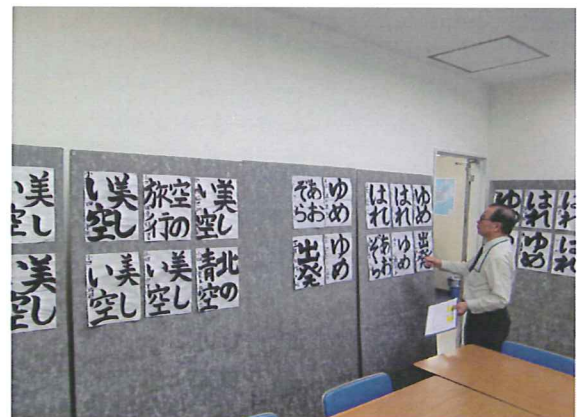 美し
い空
美し
い空
美し
い空
空の
旅行
美し
い空
美し
い空
美し
い空
北の
青空
あお
ぞら
ゆめ
出発
ゆめ
はれ
はれ
ゆめ
あお
ぞら
ゆめ
出発
ゆめ
はれ
はれ
ゆめ
はれ